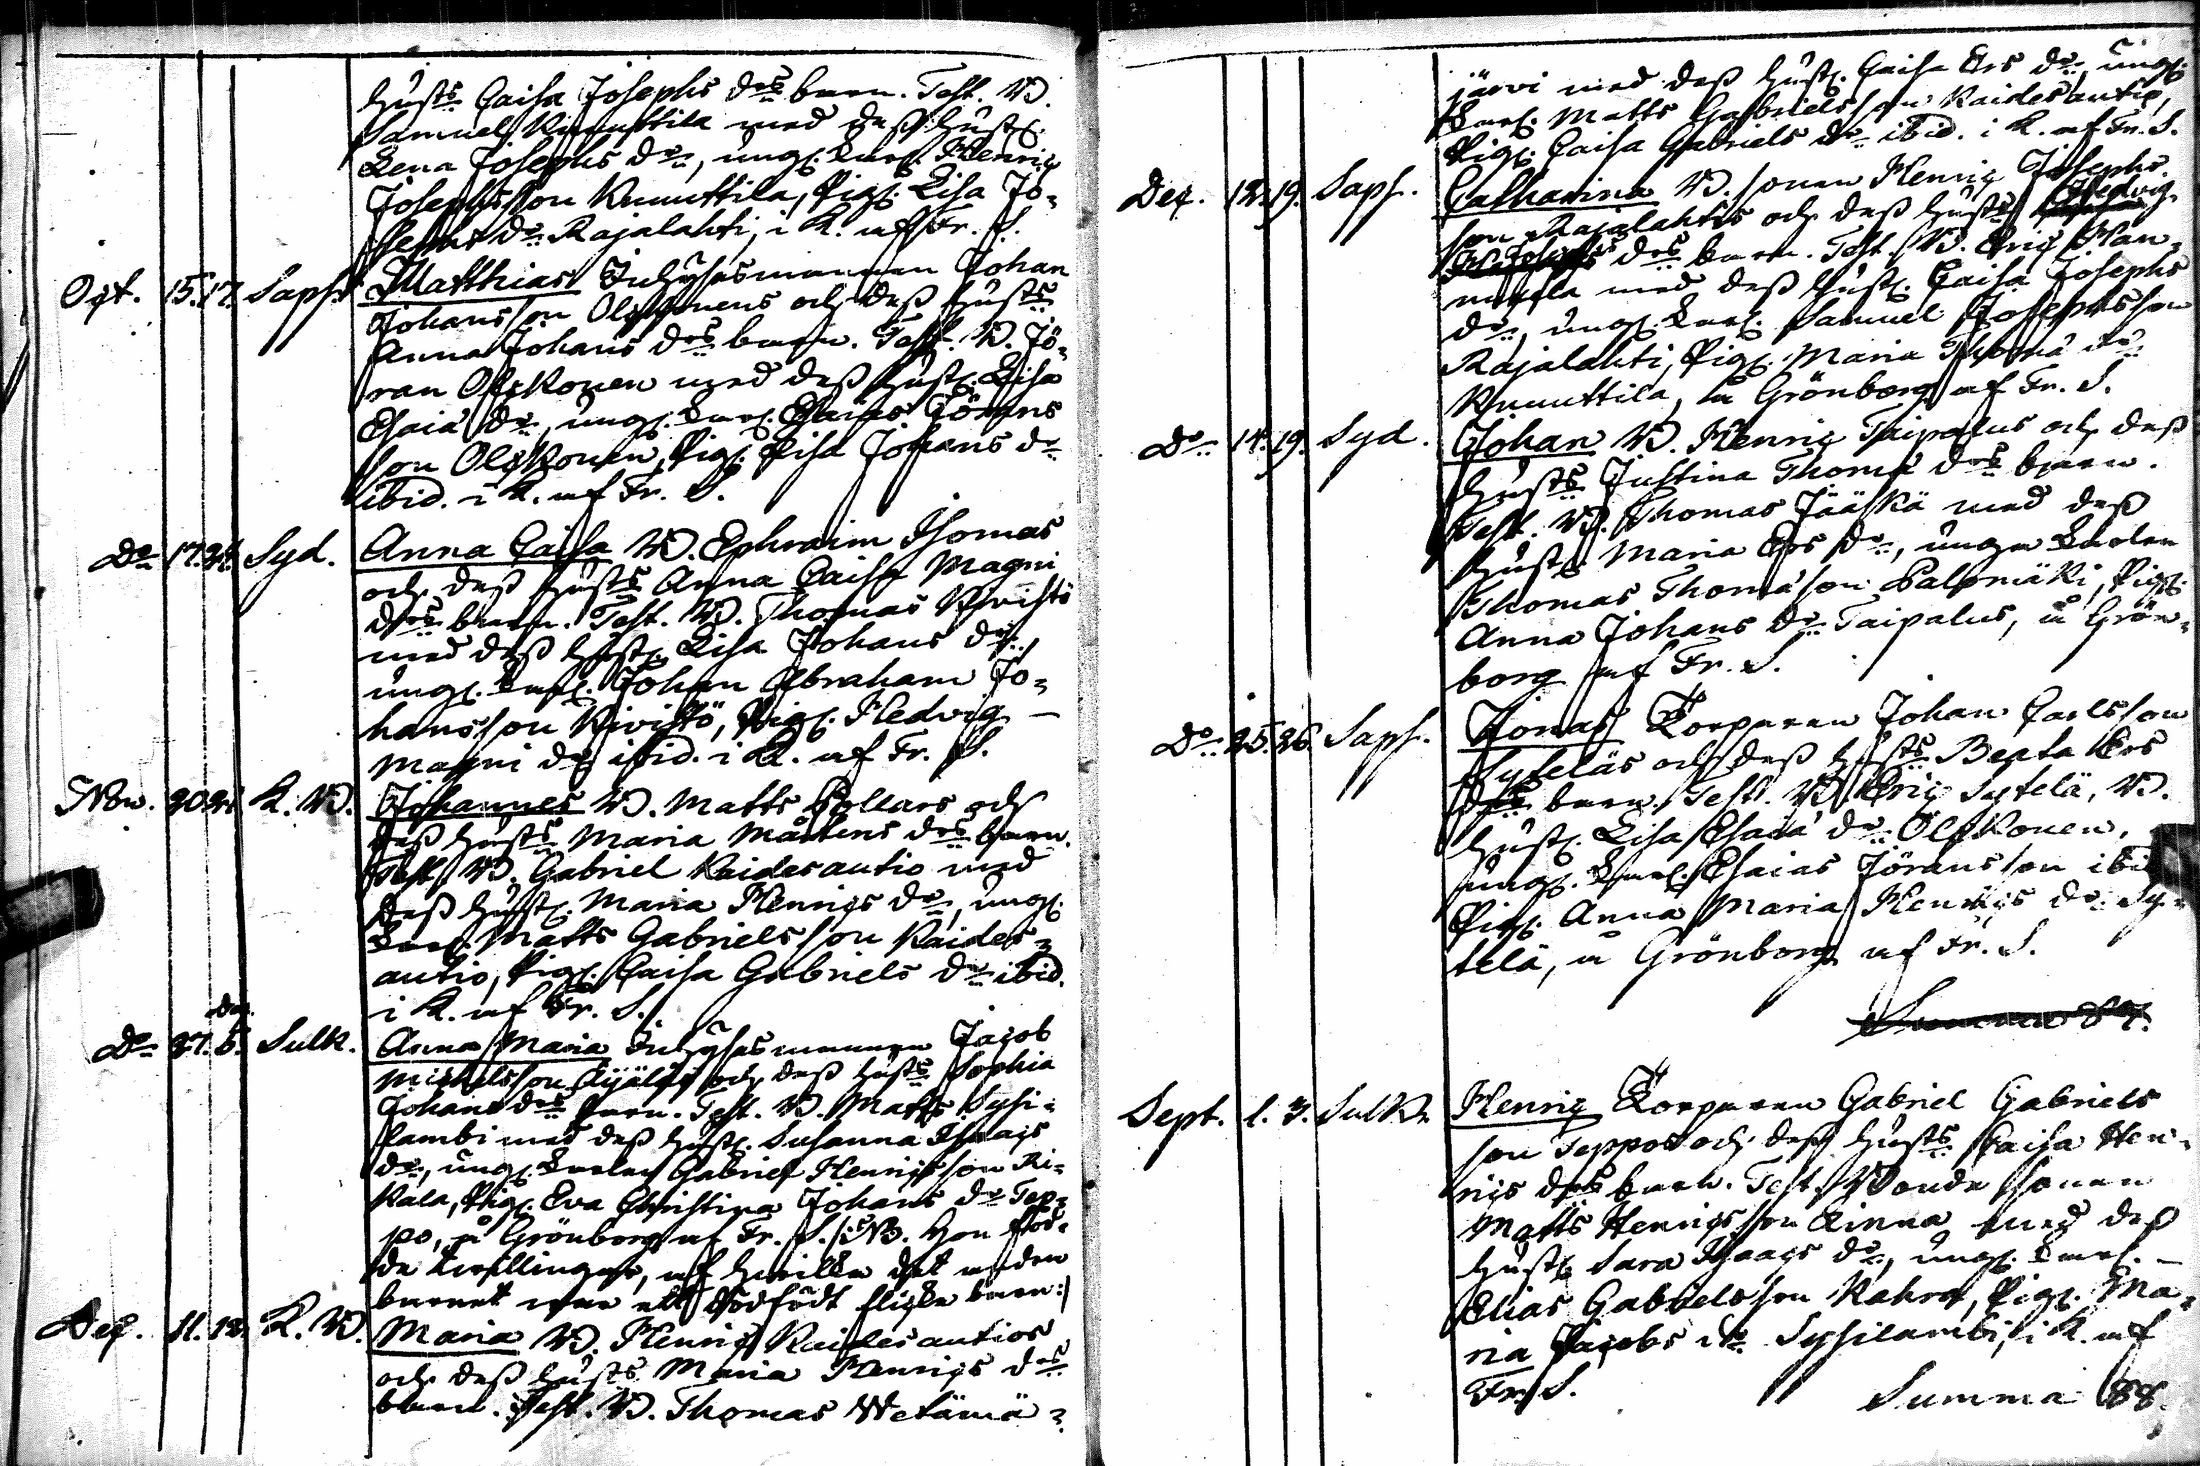 hustr Caisa Josephs drs barn. Test. B.
Samuel Knuuttila med dess hustr.
Lena Josephs dr, ungk. karl. Henric
Josephsson Knuuttila, Pig. Lisa Jo-
sephs dr Rajalahti, i K. af Fr. S.
Oct. 15. 17. Saph. Matthias Inhysesmannen Johan
Johansson Olkkonens och dess hustrs
Anna Johans drs barn. Test. B. Jö-
ran Olkkonen med dess hustr. Lisa
Esaiæ dr, ungk. karl. Esaias Jörans
son Olkkonen, Pig. Lisa Johans dr
ibid. i K. af Fr. S.
Do 17. 24. Syd. Anna Caisa B. Ephraim Thomas
och dess hustrs Anna Caisa Magni
drs barn. Test. B. Thomas Kivistö
med dess hustr. Lisa Johans dr,
ungk. karl. Johan Abraham Jo-
hansson Kivistö, Pig. Hedvig
Magni dr ibid. i K. af Fr. S.
Nov. 20. 21. K. B. Johannes B. Matts Pollars och
dess hustrs Maria Mårtens drs barn.
Test. B. Gabriel Raidesautio med
dess hustr. Maria Henrics dr, ungk.
karl. Matts Gabrielsson Raides-
autio, Pig. Caisa Gabriels dr ibid.
i K. af Fr. S.
Dec.
Do 27. 5. Sulk. Anna Maria Inhysesmannen Jacob
Michelsson Äijäläs och dess hustrs Sophia
Johans drs barn. Test. B. Matts Sysi-
lambi med dess hustr. Susanna Isaacs
dr, ungk. karlen Gabriel Henricsson Ri-
kala, Pig. Eva Christina Johans dr Sep-
po, å Grönborg af Fr. S. /: NB. Hon föd-
de tvillingar, af hvilka det andra
barnet var ett dödfödt flicke barn :/
Dec. 11. 12. K. B. Maria B. Henric Raidesautios
och dess hustrs Maria Henrics drs
barn. Test. B. Thomas Wetämä-
järvi med dess hustr. Caisa Ers dr, ungk.
karl. Matts Gabrielsson Raidesautio,
Pig. Caisa Gabriels dr ibid. i K. af Fr. S.
Dec. 12. 19. Saph. Catharina B. sonen Henric Josephs
son Rajalahtis och dess hustrs Hedvig
Josephs drs barn. Test. B. Eric Han-
nula med dess hustr. Caisa Josephs
dr, ungk. karl. Samuel Josephsson
Rajalahti, Pig. Maria Thomæ dr
Knuuttila, å Grönborg af Fr. S.
Do 14. 19. Syd. Johan B. Henric Taipalus och dess
hustrs Justina Thomæ drs barn.
Test. B. Thomas Jääskä med dess
hustr. Maria Ers dr, ungk. karlen
Thomas Thomæson Palomäki, Pig.
Anna Johans dr Taipalus, å Grön-
borg af Fr. S.
Do 25. 26. Saph. Jonas Torparen Johan Carlsson
Syteläs och dess hustrs Beata Ers
drs barn. Test. B. Eric Sytelä, B.
hustr. Lisa Esaiæ dr Olkkonen,
ungk. karl. Esaias Jöransson ibid
Pig. Anna Maria Henrics dr Sy-
telä, å Grönborg af Fr. S.
Summa 87.
Sept. 1. 3. Sulk. Henric Torparen Gabriel Gabriels
son Seppos och dess hustrs Caisa Hen-
rics drs barn. Test. Bonde sonen
Matts Henricsson Kinna med dess
hustr. Sara Isaacs dr, ungk. karl.
Elias Gabrielsson Kahra, Pig. Ma-
ria Jacobs dr Sysilambi, i K. af
Fr. S.
Summa 88.